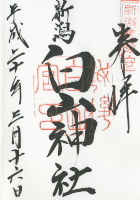 奉拝
新潟
白山神社
平成二十年三月十六日